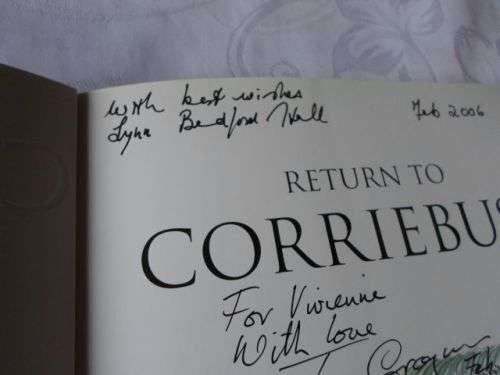 With best wishes
Lynn Bedford Hall Feb 2006
RETURN TO
CORRIEBUS
For Vivienne
With love
Feb